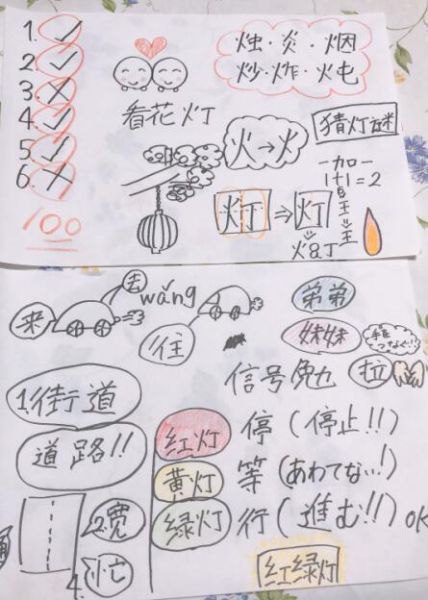 1. ✓
2. ✓
3. ✗
4. ✓
5. ✓
6. ✗
100
烛·炎·烟
炒·炸·炖
看花灯
火→火
猜灯谜
一加一
1+1=2
王
主
灯⇒灯
火&丁
来
去
wǎng
往
弟弟
妹妹
手をつなぐ!!
信号
拉
1.街道
道路!!
红灯 停(停止!!)
黄灯 等(あわてない!)
绿灯 行(進む!!)OK
2.宽
4.忙
红绿灯